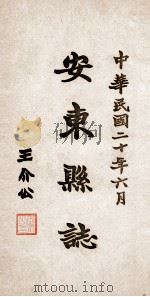 中華民國二十年六月
安東縣誌
王介公
http://www.mtoou.info/